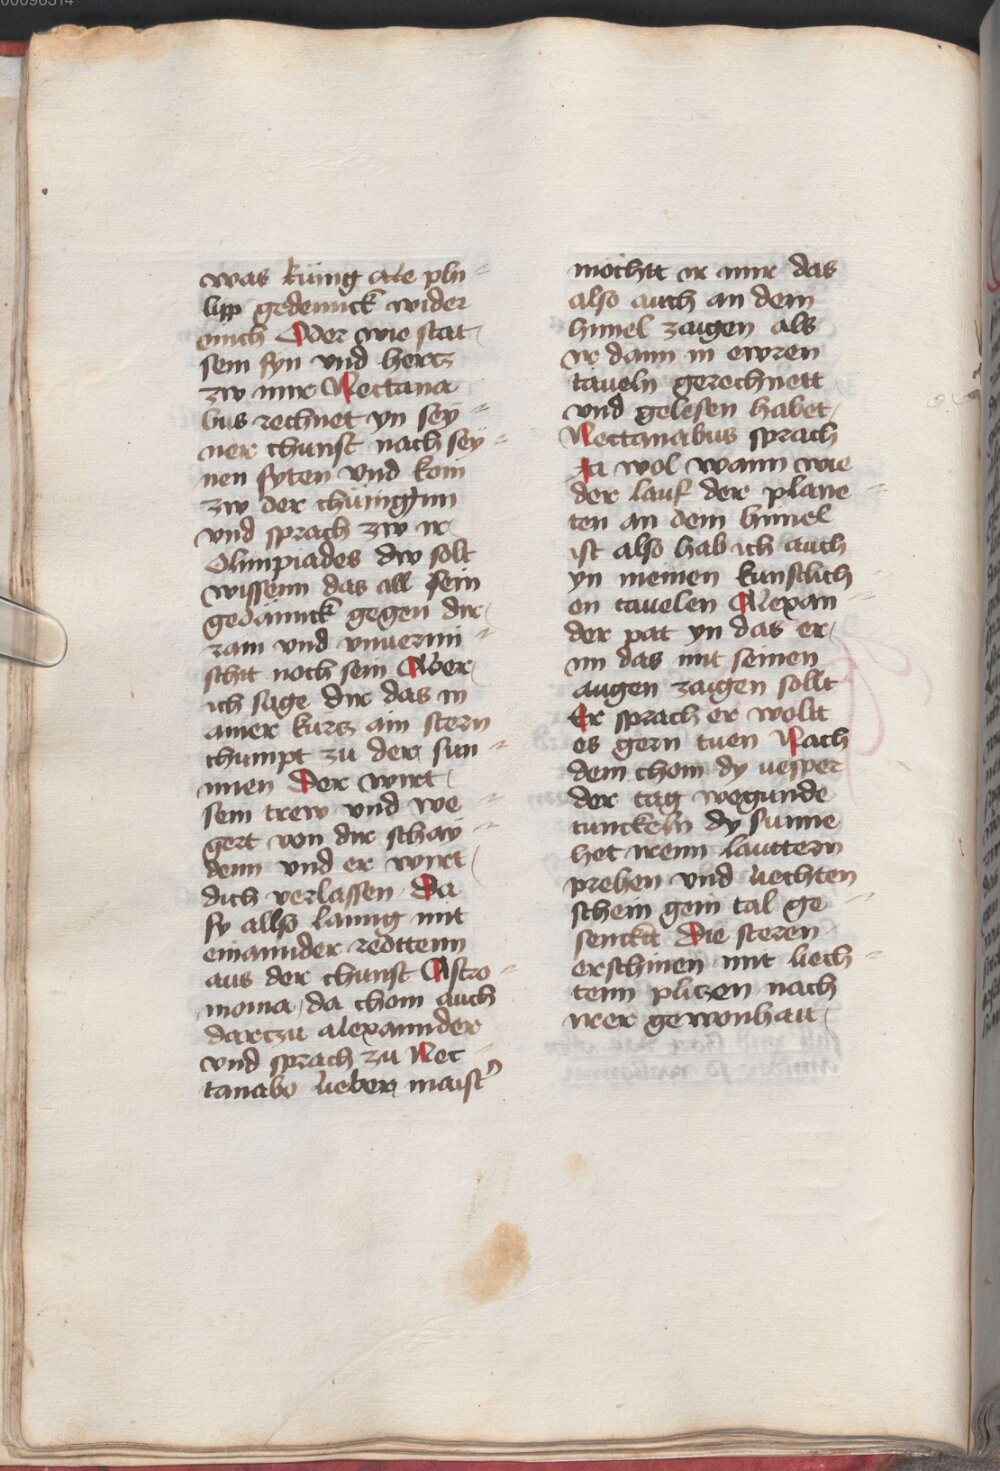 00096314
was kuing ale phi
lipp gedennck wider
euich Oder wie stat
sein syn vnd hertz
zw mir Nectana
bus rechnet yn sey
ner chunst nach sey
nen syten vnd kom
zw der chüniginn
vnd sprach zw ir
Olimpiades dw solt
wissenn das all sein
gedännck gegen dir
zam vnd vnuermi
schit noch sein Aber
ich sage dir das in
ainer kurtz ain stern
chumpt zu der sun
nnen Der wirt
sein trew vnd we
gert von dir schay
denn vnd er wirt
dich verlassen Da
sy allso lanng mit
einannder redttenn
aus der chunst Astro
nomia da chom auch
dartzu alexannder
vnd sprach zu Nec
tanabo lieber maister
mochtt ir mir das
also auch an dem
himel zaigen als
ir dann in ewren
taueln gerechnett
vnd gelesen habet
Nectanabus sprach
Ja wol wann wie
der lauf der plane
ten an dem himel
ist also hab ich auch
yn meinen kunstlich
en tauelen Alexan
der pat yn das er
im das mit seinen
augen zaigen sollt
Er sprach er wollt
es gern tuen Nach
dem chom dy vesper
der tag wegunde
tunckeln dy sunne
het irenn lauttern
prehen vnd liechten
schein gein tal ge
senckt Die steren
erschinen mit liech
tenn plitzen nach
irer gewonhait